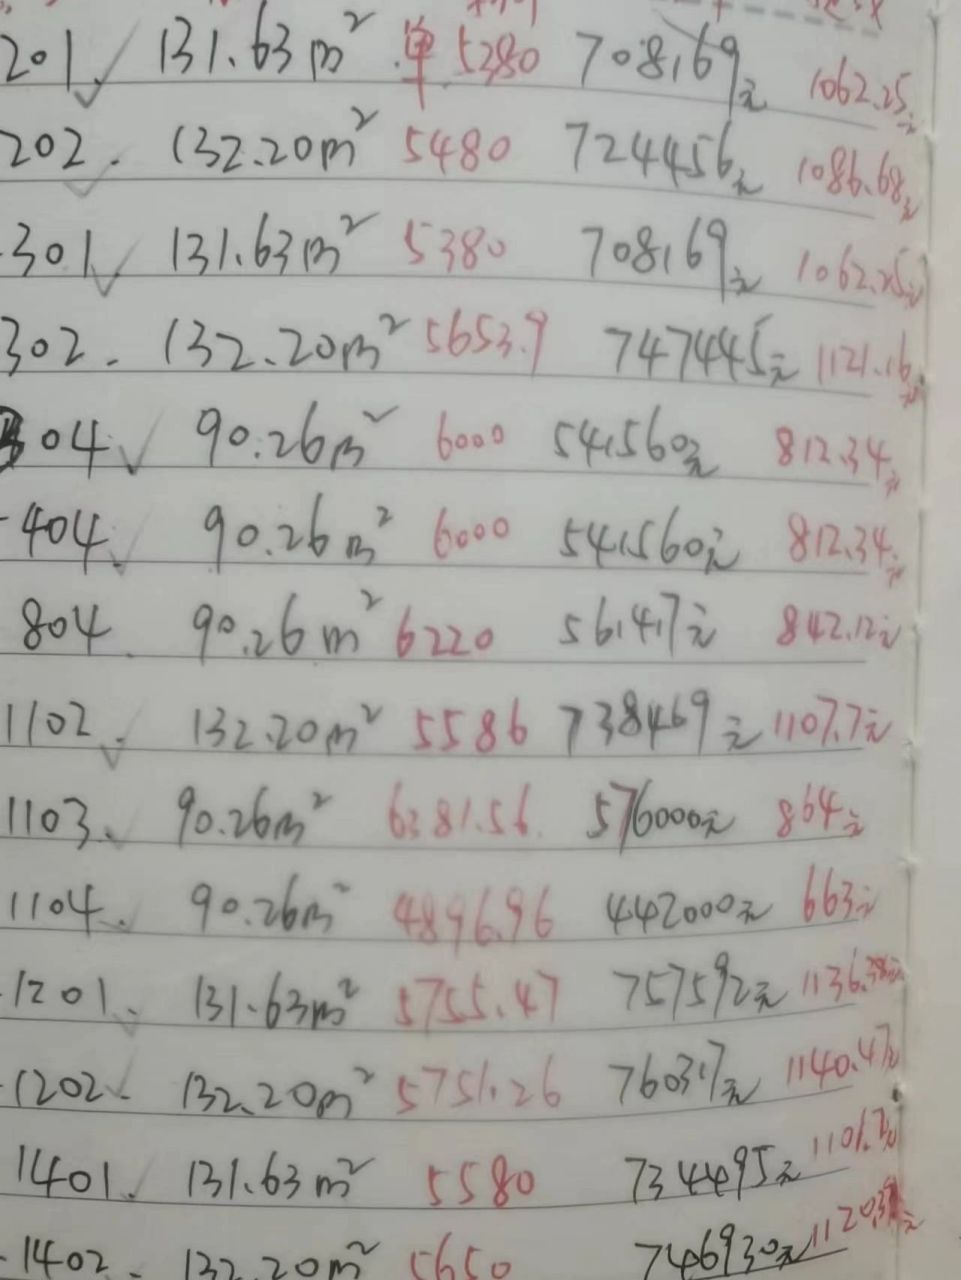 201 131.63m² 单 5380 708169元 1062.25元
202. 132.20m² 5480 724456元 1086.68元
301 131.63m² 5380 708169元 1062.25元
302. 132.20m² 5653.9 747445元 1121.16元
304 90.26m² 6000 541560元 812.34元
404 90.26m² 6000 541560元 812.34元
804 90.26m² 6220 561417元 842.12元
1102 132.20m² 5586 738469元 1107.7元
1103. 90.26m² 6381.56 576000元 864元
1104. 90.26m² 4896.96 442000元 663元
1201. 131.63m² 5755.47 757592元 1136.38元
1202 132.20m² 5751.26 760317元 1140.47元
1401. 131.63m² 5580 734495元
1402. 132.20m² 5650 746930元